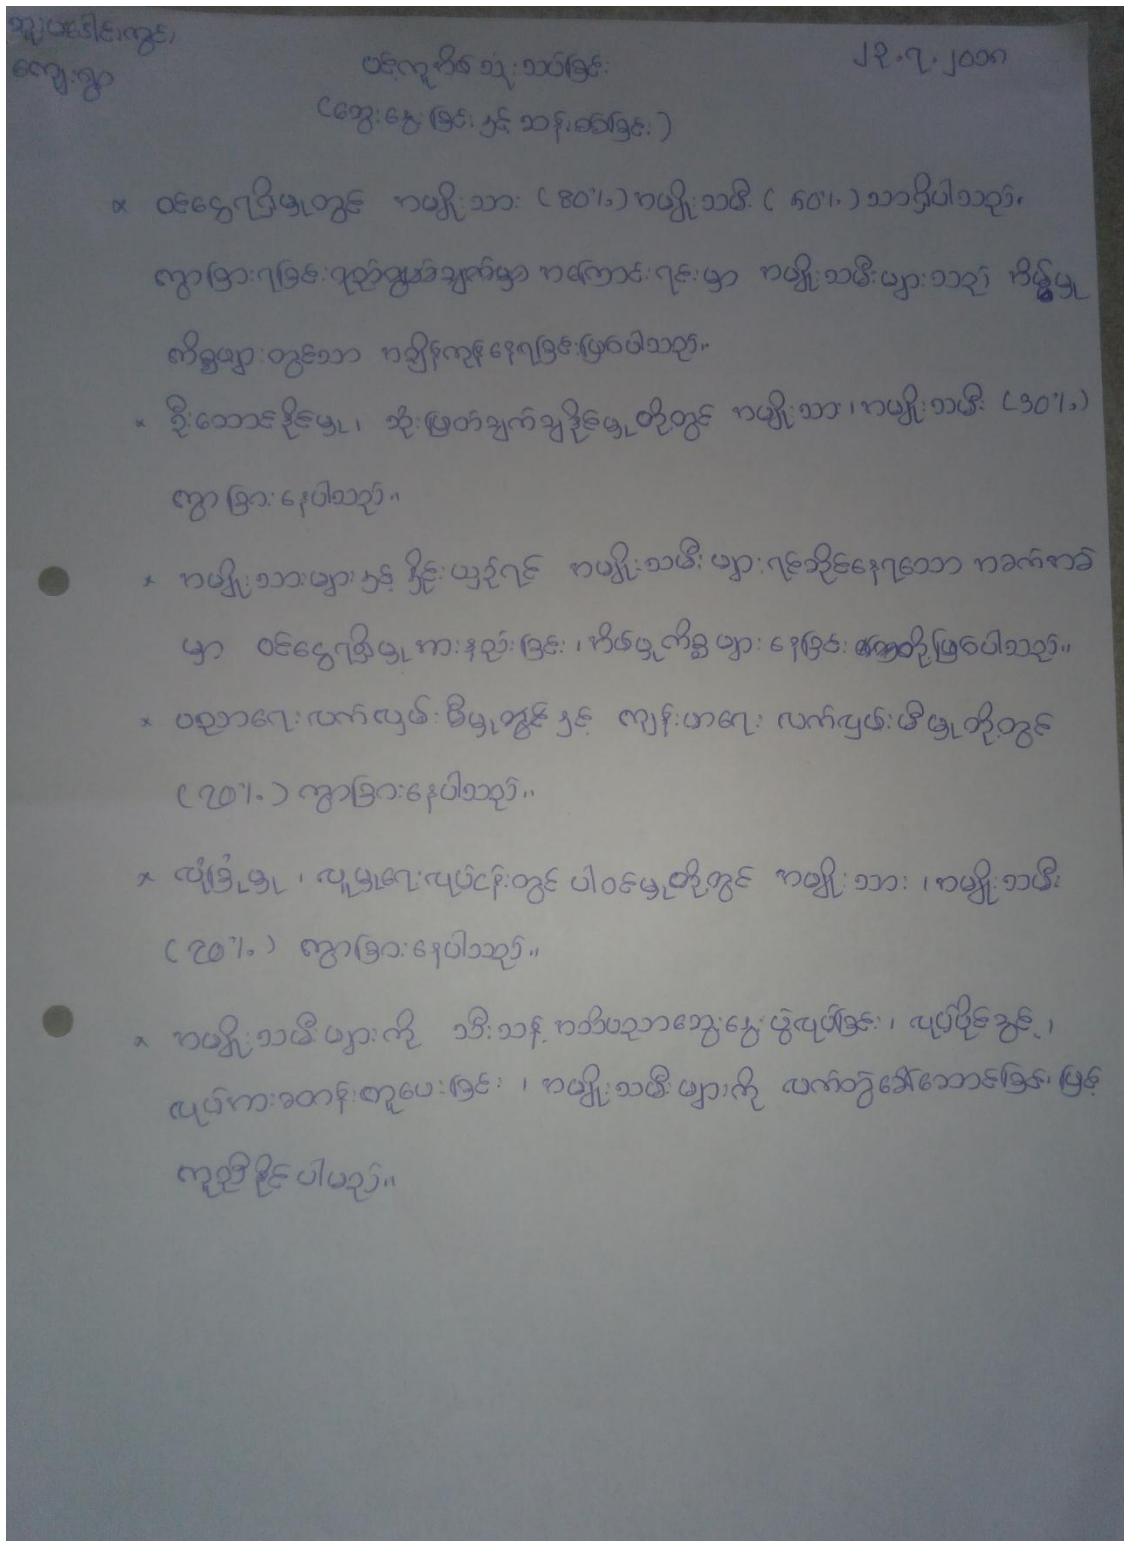 ကျေးရွာ
၂၃.၇.၂၀၁၈
ပန့်ကူအိစ် သုံးသပ်ခြင်း
(ဆွေးနွေးခြင်းနှင့် ဆန်းစစ်ခြင်း)
ဝင်ငွေရရှိမှုတွင် အမျိုးသား (80%) အမျိုးသမီး (50%) သာရှိပါသည်။
ကွာခြားရခြင်း အကြောင်းရင်းမှာ အမျိုးသမီးများသည် အိမ်မှု
ကိစ္စများတွင်သာ အချိန်ကုန်နေရခြင်းဖြစ်ပါသည်။
* ဦးဆောင်နိုင်မှု၊ ဆုံးဖြတ်ချက်ချနိုင်မှုတို့တွင် အမျိုးသား၊ အမျိုးသမီး (30%)
ကွာခြားနေပါသည်။
* အမျိုးသားများနှင့် နှိုင်းယှဉ်ရင် အမျိုးသမီးများရင်ဆိုင်နေရသော အခက်အခဲ
မှာ ဝင်ငွေရရှိမှုအားနည်းခြင်း၊ အိမ်မှုကိစ္စများနေခြင်း တို့ဖြစ်ပါသည်။
* ပညာရေးလက်လှမ်းမီမှုနှင့် ကျန်းမာရေး လက်လှမ်းမီမှုတို့တွင်
(20%) ကွာခြားနေပါသည်။
* လုံခြုံမှု၊ လူမှုရေးလုပ်ငန်းတွင် ပါဝင်မှုတို့တွင် အမျိုးသား၊ အမျိုးသမီး
(20%) ကွာခြားနေပါသည်။
* အမျိုးသမီးများကို သီးသန့် အသိပညာဆွေးနွေးပွဲလုပ်ခြင်း၊ လုပ်ပိုင်ခွင့်၊
လုပ်အားခတန်းတူပေးခြင်း၊ အမျိုးသမီးများကို လက်တွဲခေါ်ဆောင်ခြင်းဖြင့်
ကူညီနိုင်ပါမည်။